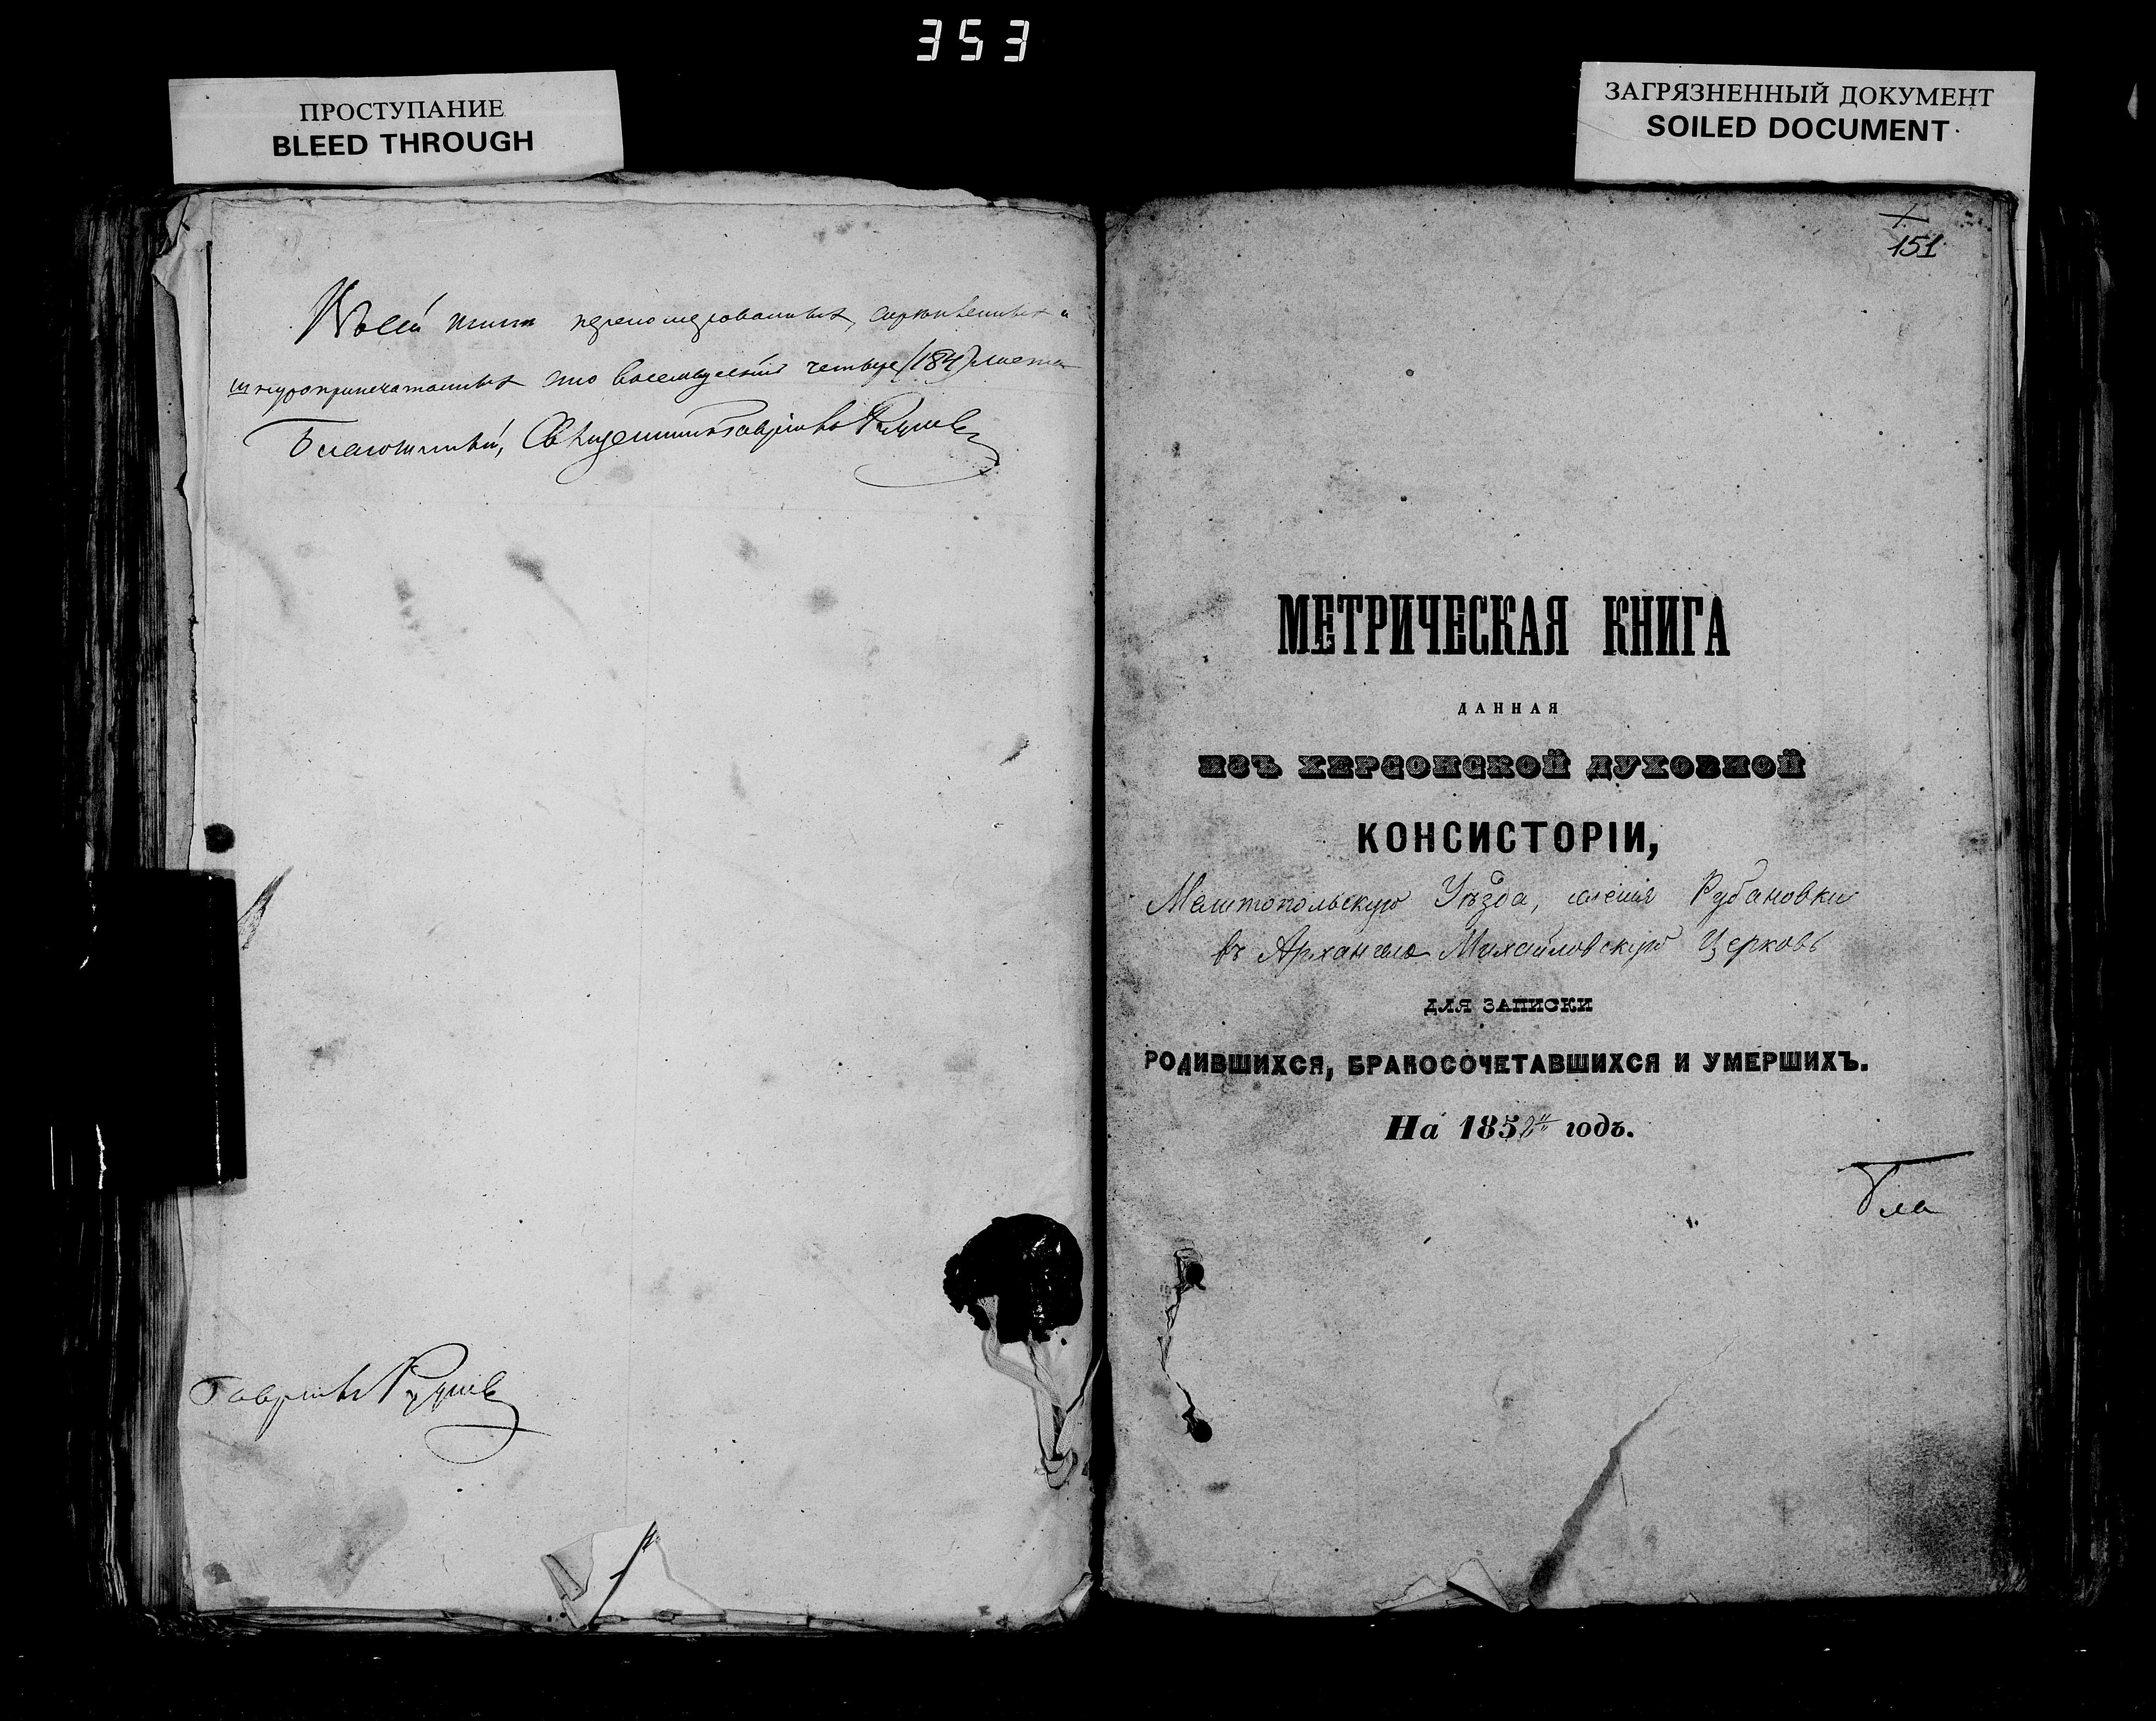 353
ПРОСТУПАНИЕ
BLEED THROUGH
ЗАГРЯЗНЕННЫЙ ДОКУМЕНТ
SOILED DOCUMENT
Въ сей книгѣ перенумерованныхъ, скрѣпленныхъ и
шнуропричатанныхъ сто восемьдесятъ четыре (184) листа
Благочинный, Священникъ Гавріилъ
Гавріилъ
151
МЕТРИЧЕСКАЯ КНИГА
ДАННАЯ
ИЗЪ ХЕРСОНСКОЙ ДУХОВНОЙ
КОНСИСТОРІИ,
Мелитопольскаго Уѣзда, селенія Рубановки
въ Архангело Михайловскую Церковь
ДЛЯ ЗАПИСКИ
РОДИВШИХСЯ, БРАКОСОЧЕТАВШИХСЯ И УМЕРШИХЪ.
На 1852й годъ.
Бла